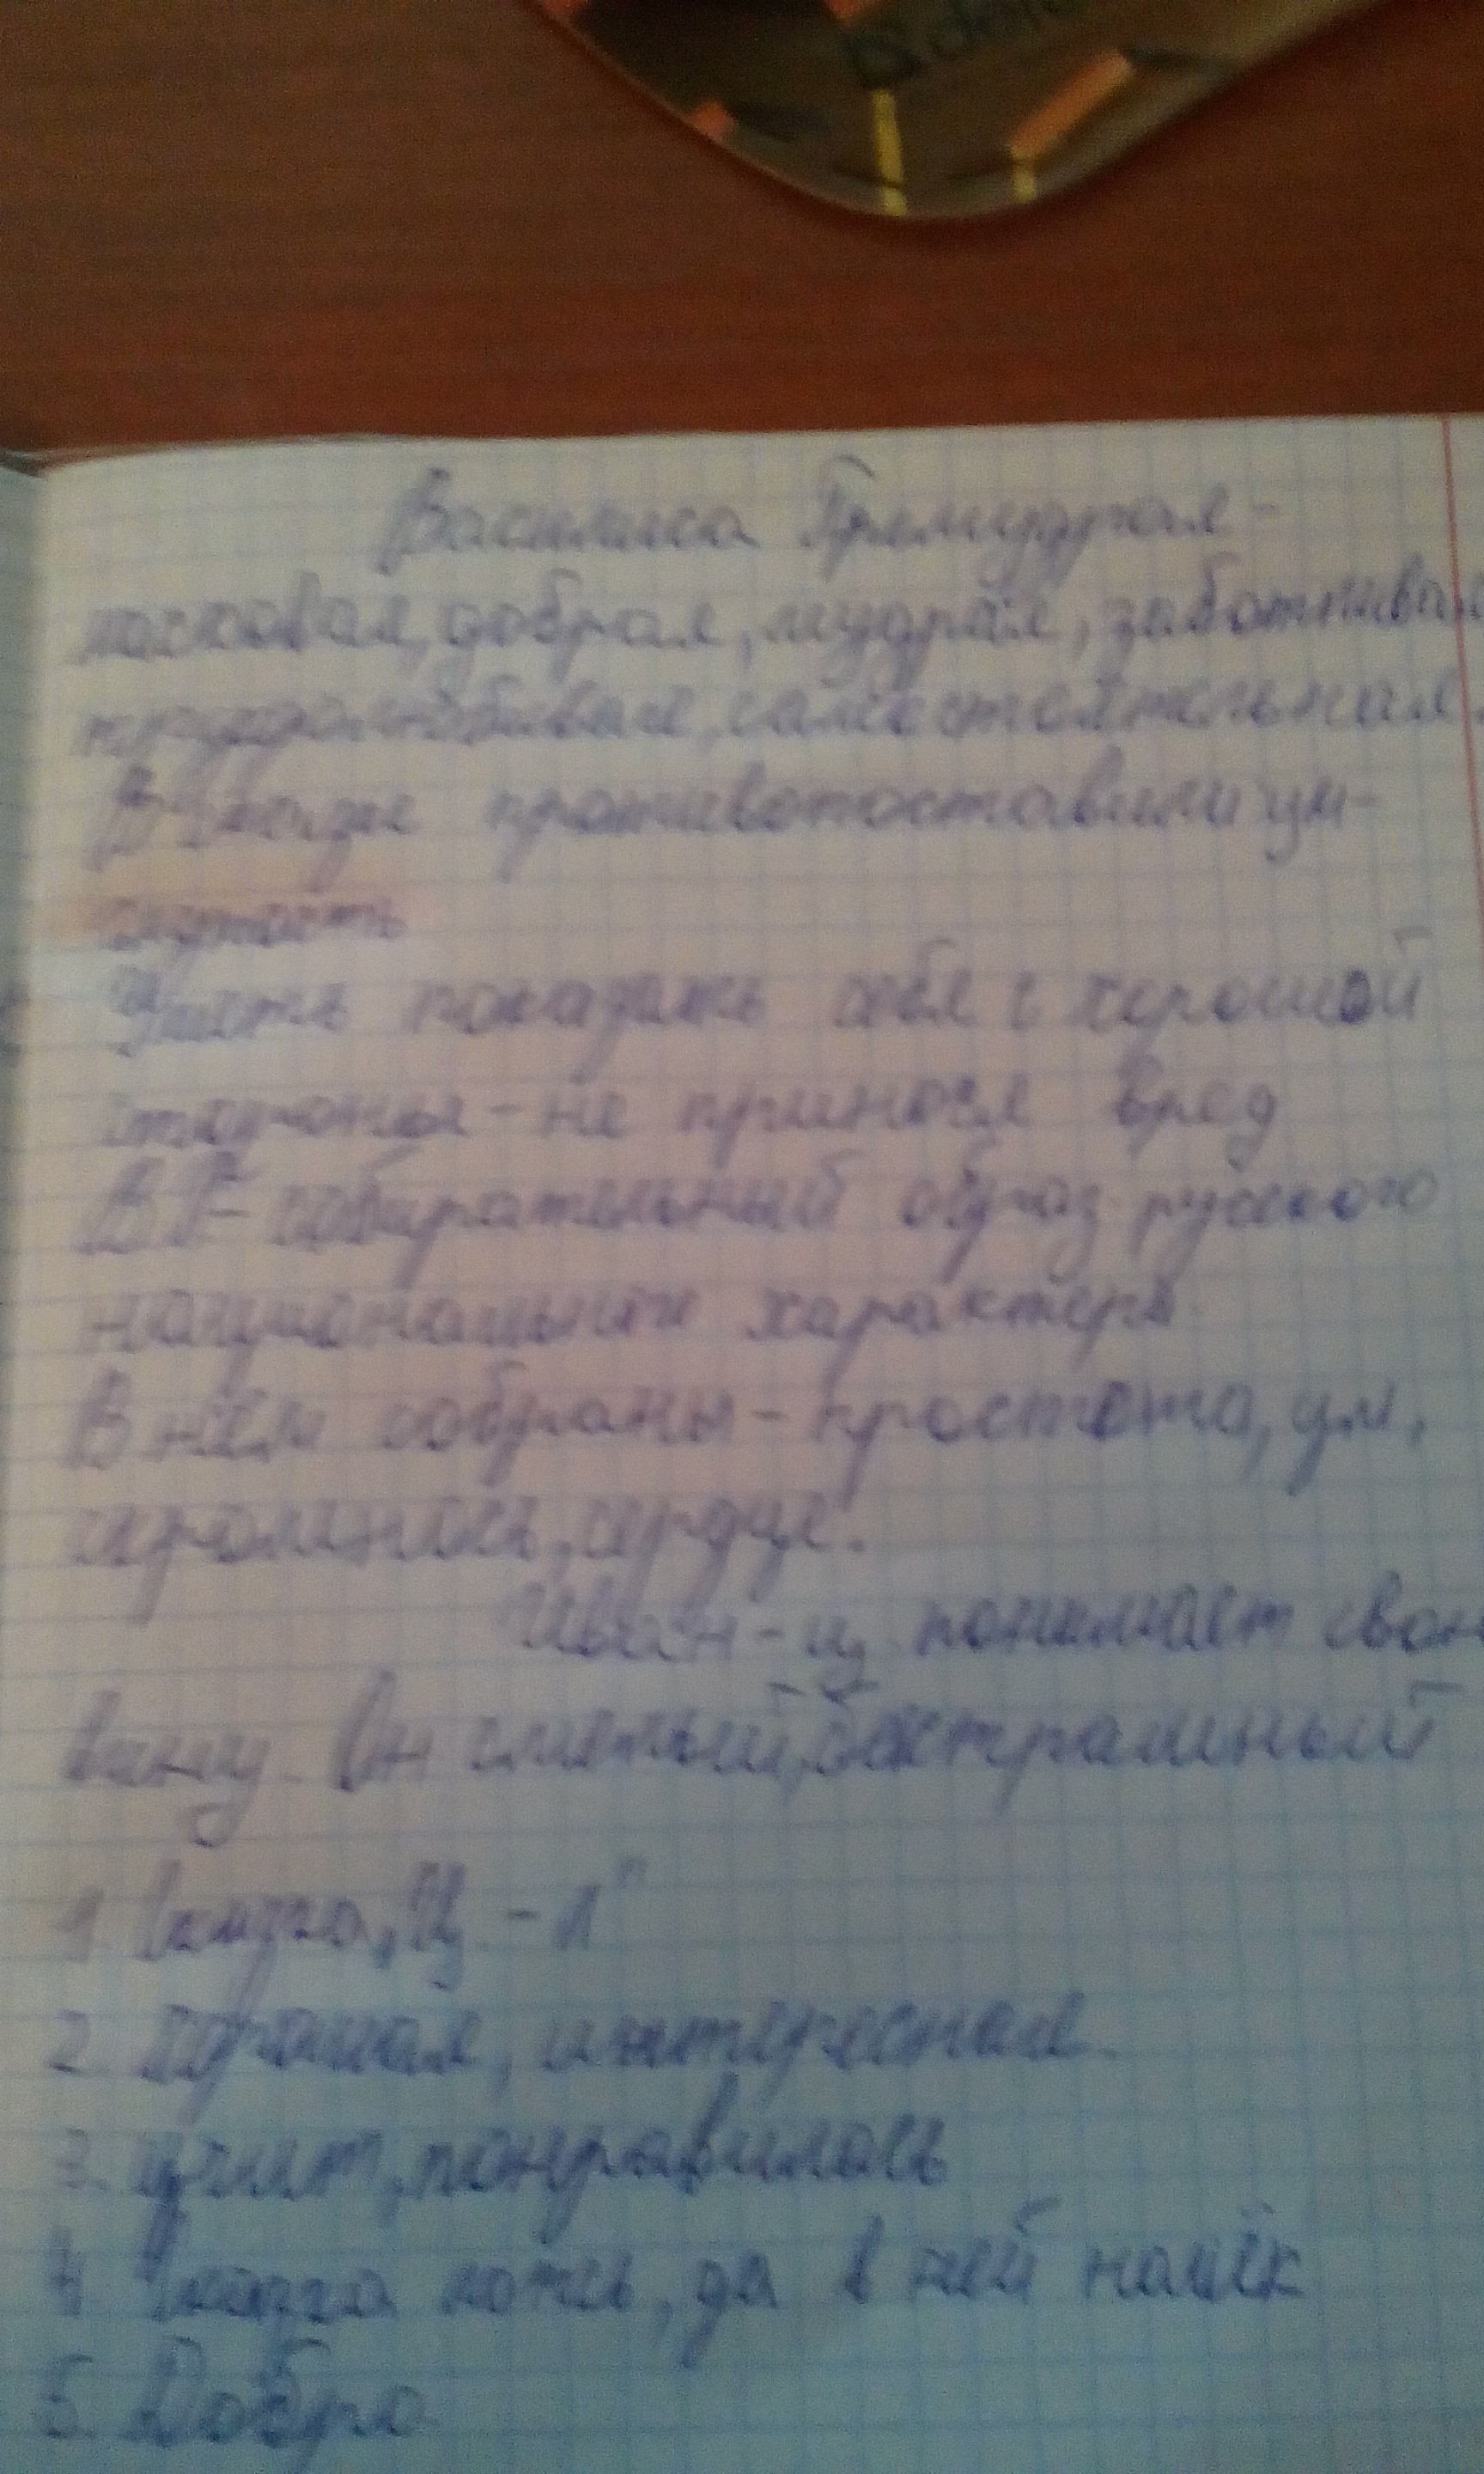 Василиса Премудрая -
ласковая, добрая, мудрая, заботливая
трудолюбивая, самостоятельная.
В сказке противопоставили ум -
глупость
Уметь показать себя с хорошой
стороны - не принося вред
ВП - собирательный образ русского
национального характера
В нём собраны - простота, ум,
скромность, сердце.
Иван-ц. понимает свою
вину. Он смелый, бесстрашный
1. Сказка „Ц - Л"
2. Хорошая, интересная.
3. Учит, понравилась
4. Сказка ложь, да в ней намёк
5. Добро